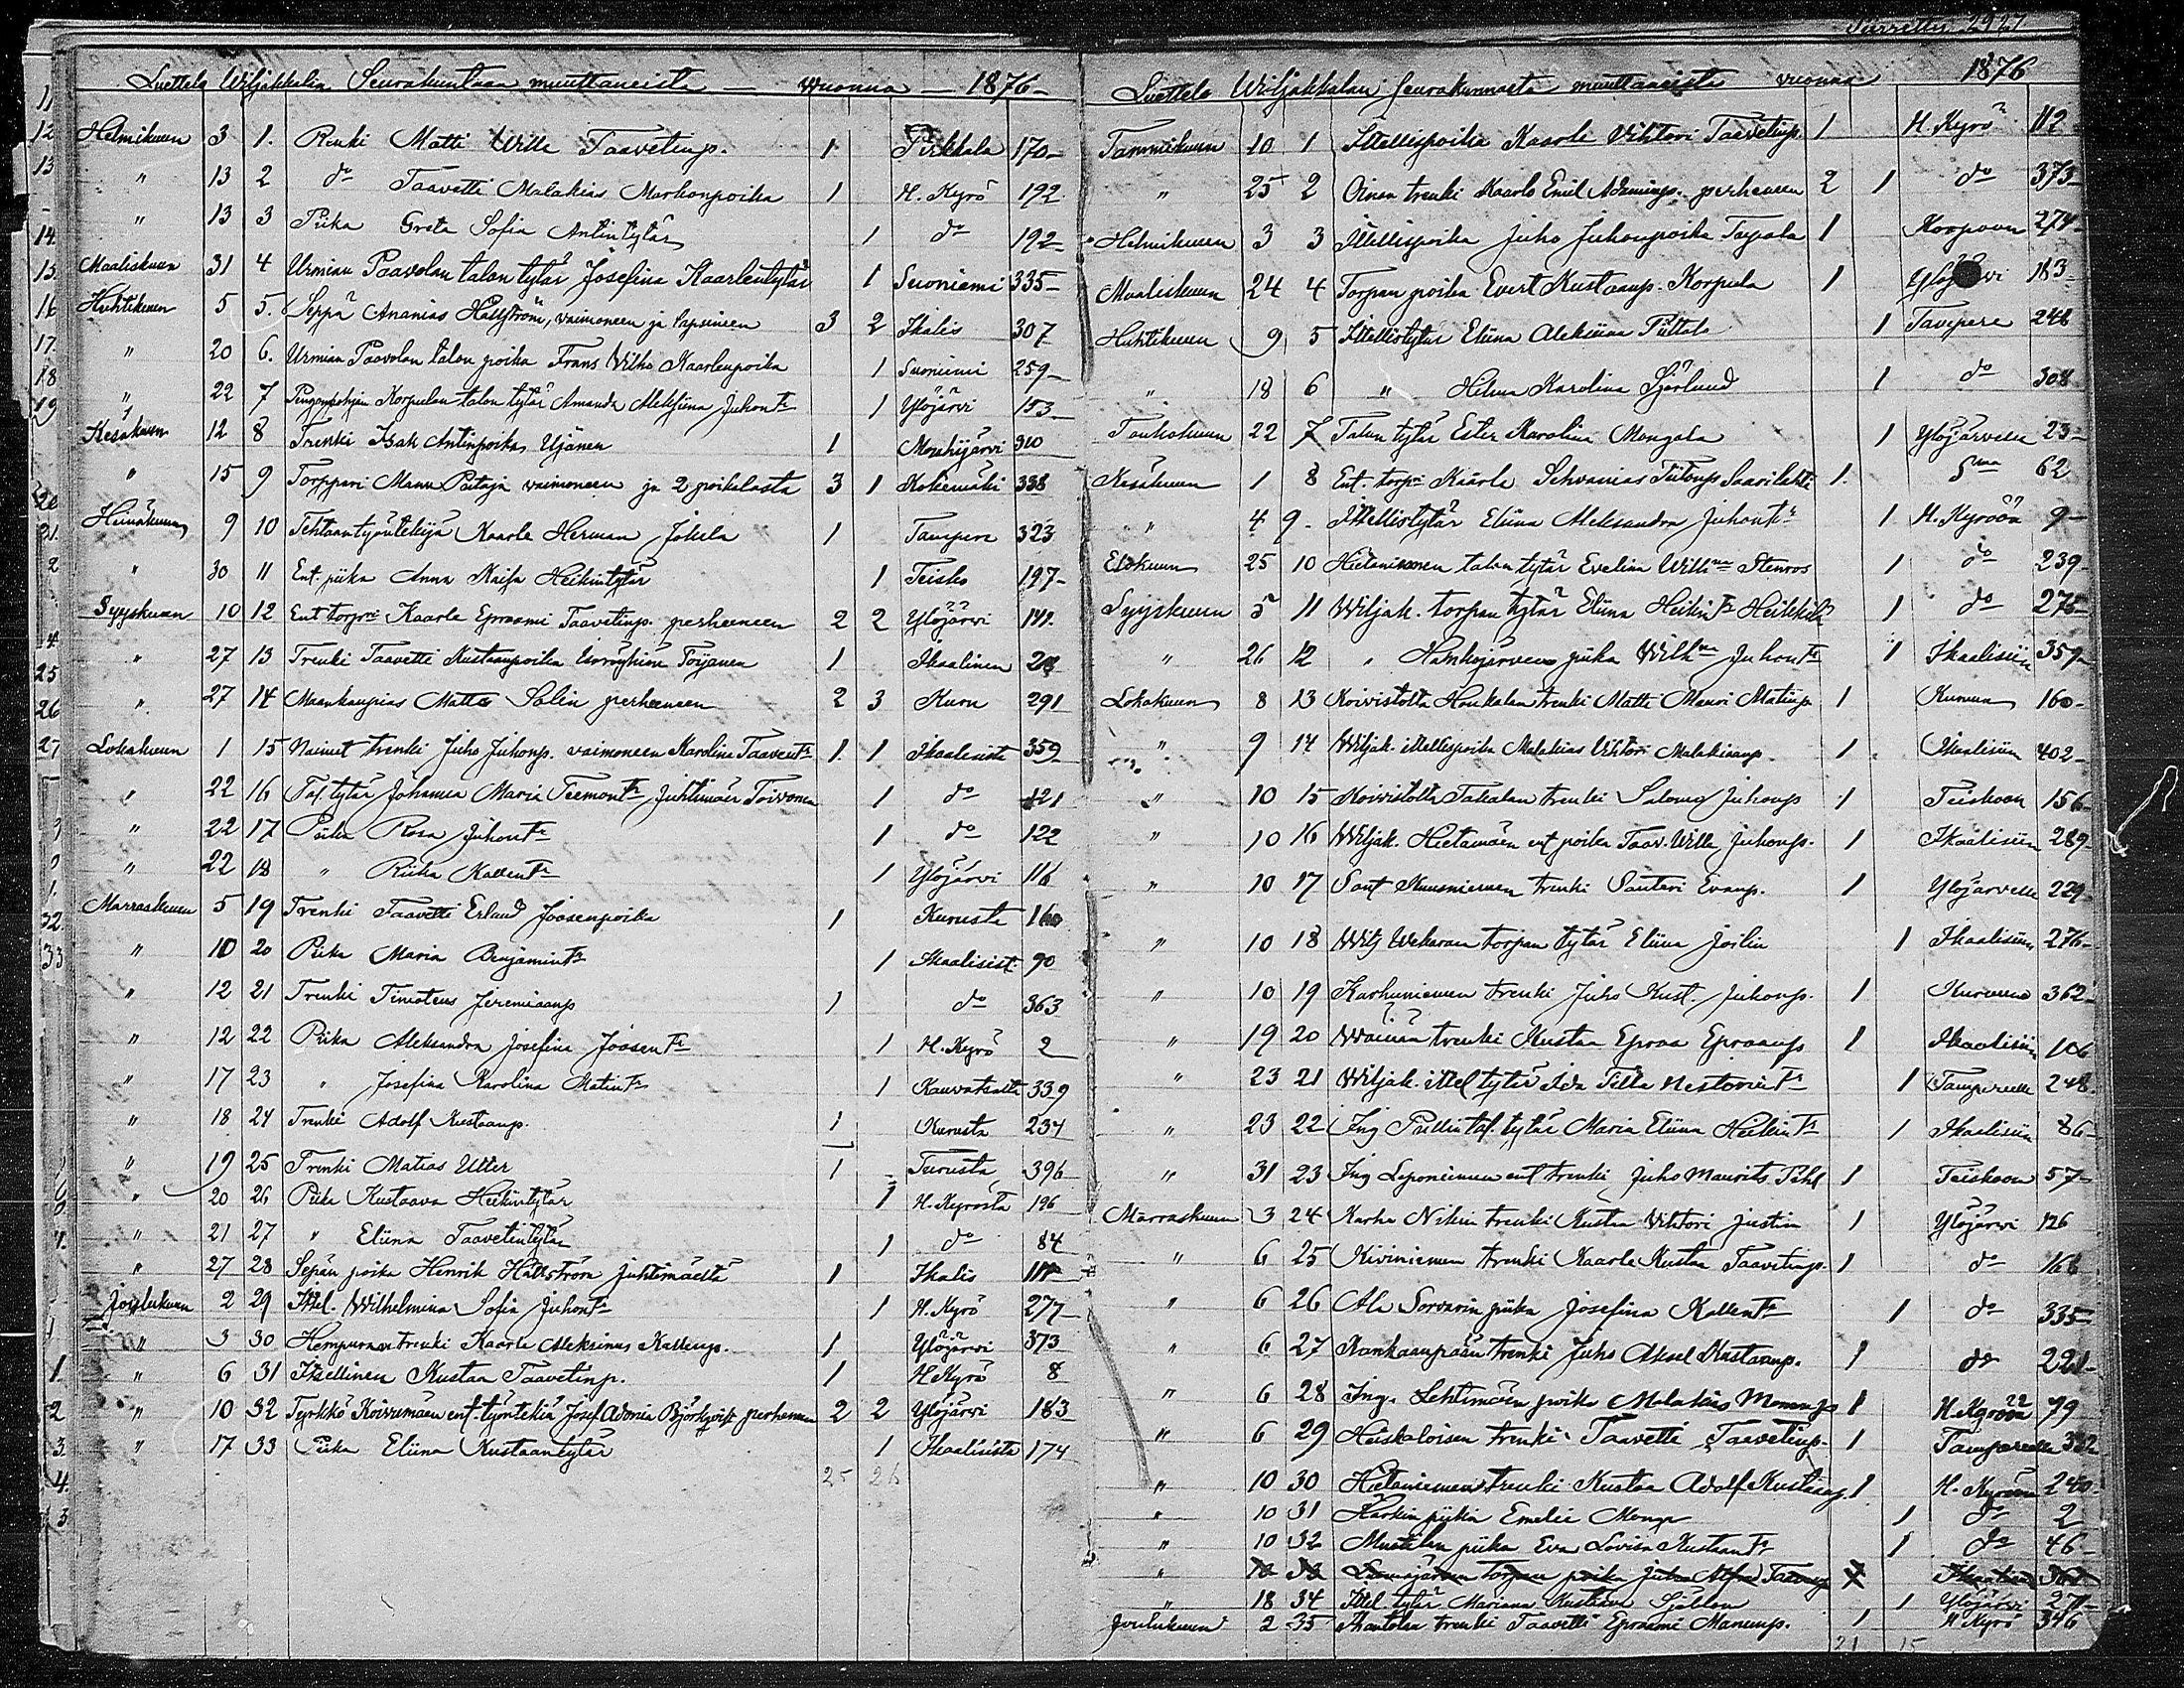 Siirrettu 2927
Luettelo Wiljakkalan Seurakuntaan muuttaneista — wuonna — 1876 –
Helmikuun 3 1. Renki Matti Wille Taavetinp. 1 Pirkkala 170 –
" 13 2 do Taavetti Malakias Markonpoika 1 H. Kyrö 192
" 13 3 Piika Greta Sofia Antintytär 1 do 192 –
Maaliskuun 31 4 Urmian Paavolan talon tytär Josefina Kaarlentytär 1 Suoniemi 335 –
Huhtikuun 5 5. Seppä Ananias Hällström, vaimoneen ja lapsineen 3 2 Ikalis 307
" 20 6. Urmian Paavolan talon poika Frans Vilho Kaarlenpoika 1 Suoniemi 259 –
" 22 7 Korpulan talon tytär Amanda Aleksiina Juhontr 1 Ylöjärvi 153
Kesäkuun 12 8 Trenki Isak Antinpoika Ujänen 1 Mouhijärvi 310
" 15 9 Torppari Manu Pataja vaimoneen ja 2 poikalasta 3 1 Kokemäki 338
Heinäkuun 9 10 Tehtaantyöntekijä Kaarle Herman Jokela 1 Tampere 323
" 30 11 Ent. piika Anna Kaisa Heikintytär 1 Teisko 197 –
Syyskuun 10 12 Ent torpri Kaarle Epraami Taavetinp. perheeneen 2 2 Ylöjärvi 141.
" 27 13 Trenki Taavetti Kustaanpoika Toijanen 1 Ikaalinen 28
" 27 14 Maankaupias Matts Salin perheeneen 2 3 Kuru 291
Lokakuun 1 15 Nainut trenki Juho Juhonp. vaimoneen Karolina Taavetr 1. 1 Ikaalisista 359
" 22 16 Tal. tytär Johanna Maria Teemontr Juhtimäen Toivonen 1 do 121
" 22 17 Piika Rosa Juhontr 1 do 122
" 22 18 " Riika Kallentr 1 Ylöjärvi 116
Marraskuun 5 19 Trenki Taavetti Erland Joosenpoika 1 Kurusta 160
" 10 20 Piika Maria Benjamintr 1 Ikaalisist. 90
" 12 21 Trenki Timoteus Jeremiaanp 1 do 363
" 12 22 Piika Aleksandra Josefina Joosentr 1 H. Kyrö 2
" 17 23 " Josefina Karolina Matintr 1 Kauvatsalta 339
" 18 24 Trenki Adolf Kustaanp. 1 Kurusta 234
" 19 25 Trenki Matias Utter 1 Turusta 396
" 20 26 Piika Kustaava Heikintytär 1 H. Kyröstä 196
" 21 27 " Eliina Taavetintytär 1 do 84
" 27 28 Sepän poika Henrik Hällström Juhtimäeltä 1 Ikalis
Joulukuun 2 29 Ittel. Wilhelmina Sofia Juhontr 1 H. Kyrö 277
" 3 30 Hempuran trenki Kaarle Aleksinus Kallenp. 1 Ylöjärvi 373
" 6 31 Itsellinen Kustaa Taavetinp. 1 H Kyrö 8
" 10 32 Tyrkkö Koivumäen ent. työntekiä Josef Adonia Björkqvist perheineen 2 2 Ylöjärvi 183
" 17 33 Piika Eliina Kustaantytär 1 Ikaalisista 174
25 26
Luettelo Wiljakkalan Seurakunnasta muuttaneista vuonna 1876
Tammikuun 10 1 Ittellispoika Kaarle Vihtori Taavetinp. 1 H. Kyrö 112
" 25 2 Oinan trenki Kaarlo Emil Adaminp. perheneen 2 1 do 373
Helmikuun 3 3 Ittellispoika Juho Juhonpoika Tapala 1 Korpoon 274
Maaliskuun 24 4 Torpan poika Evert Kustaanp. Korpela 1 Ylöjärvi 183
Huhtikuun 9 5 Ittellistytär Eliina Aleksiina Piittala 1 Tampere 248
" 18 6 " Helma Karolina Sjölund 1 do 308
Toukokuun 22 7 Talon tytär Ester Karolina Mongala 1 Ylöjärvelle 23 –
Kesäkuun 1 8 Ent. torpri Kaarle Schvanias Tiitonp Saarilahti 1. 62
" 4 9. Ittellistytär Eliina Aleksandra Juhontr 1 H. Kyröön 9 –
Elokuun 25 10 Hietaniemen talon tytär Evelina Willina Stenroos 1 do 239
Syyskuun 5 11 Wiljak. torpan tytär Eliina Heikintr Heikkilä 1 do 275
" 26 12 " Hankijärven piika Wilhna Juhontr 1 Ikaalisiin 359
Lokakuun 8 13 Koivistolta Haukalan trenki Matti Mauri Matinp 1 Kuruun 160 –
" 9 14 Wiljak. ittellispoika Malakias Vihtori Malakiaanp. 1 Ikaalisiin 402 –
" 10 15 Koivistolta Takalan trenki Salomo Juhonp 1 Teiskoon 156
" 10 16 Wiljak. Hietamäen ent poika Taav. Wille Juhonp. 1 Ikaalisiin 289
" 10 17 Sont Kuusniemen trenki Santeri Evanp. 1 Ylöjärvelle 229
" 10 18 Wilj Wekaran torpan tytär Eliina Joilin 1 Ikaalisiin 276 –
" 10 19 Karhuniemen trenki Juho Kust. Juhonp. 1 Kuruun 362
" 19 20 Wäinän trenki Kustaa Epraa Epraanp 1 Ikaalisiin 106
" 23 21 Wiljak. ittel tytär Ida Tilta Nestorintr 1 Tampereelle 248
" 23 22 Ing Pällin tal. tytär Maria Eliina Heikintr 1 Ikaalisiin 86 –
" 31 23 Ing Leponiemen ent trenki Juho Maurits Pihl 1 Teiskoon 57 –
Marraskuun 3 24 Karhe Nikin trenki Kustaa Vihtori Justin 1 Ylöjärvi 126
" 6 25 Kiviniemen trenki Kaarle Kustaa Taavetinp. 1 do 168
" 6 26 Ala Sorvarin piika Josefina Kallentr 1 do 335
" 6 27 Kankaanpään trenki Juho Aksel Kustaanp. 1 do 221 –
" 6 28 Ing. Lehtimäen poika Malakias Mananp 1 H. Kyröön 79
" 6 29 Heiskaloisen trenki Taavetti Taavetinp. 1 Tampereelle 332
" 10 30 Hietaniemen trenki Kustaa Adolf Kustaanp. 1 H. Kyröön 240
" 10 31 Härkin piika Emelie 1 do 2
" 10 32 Mustilan piika Eva Lovisa Kustaantr 1 do 46 –
" torpan poika Juho Alfred Taavetinp
" 18 34 Ittel. tytär Mariana Kustaava Själlan 1 Ylöjärvi 271
Joulukuun 2 35 Mantolan trenki Taavetti Epraami Manunp. 1 H Kyrö 346
21 15